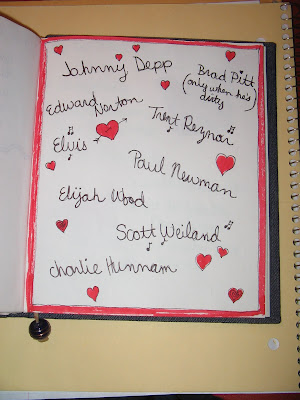 Johnny Depp
Brad Pitt
(only when he's
dirty)
Edward
Norton
Trent Reznor
Elvis
Paul Newman
Elijah Wood
Scott Weiland
Charlie Hunnam